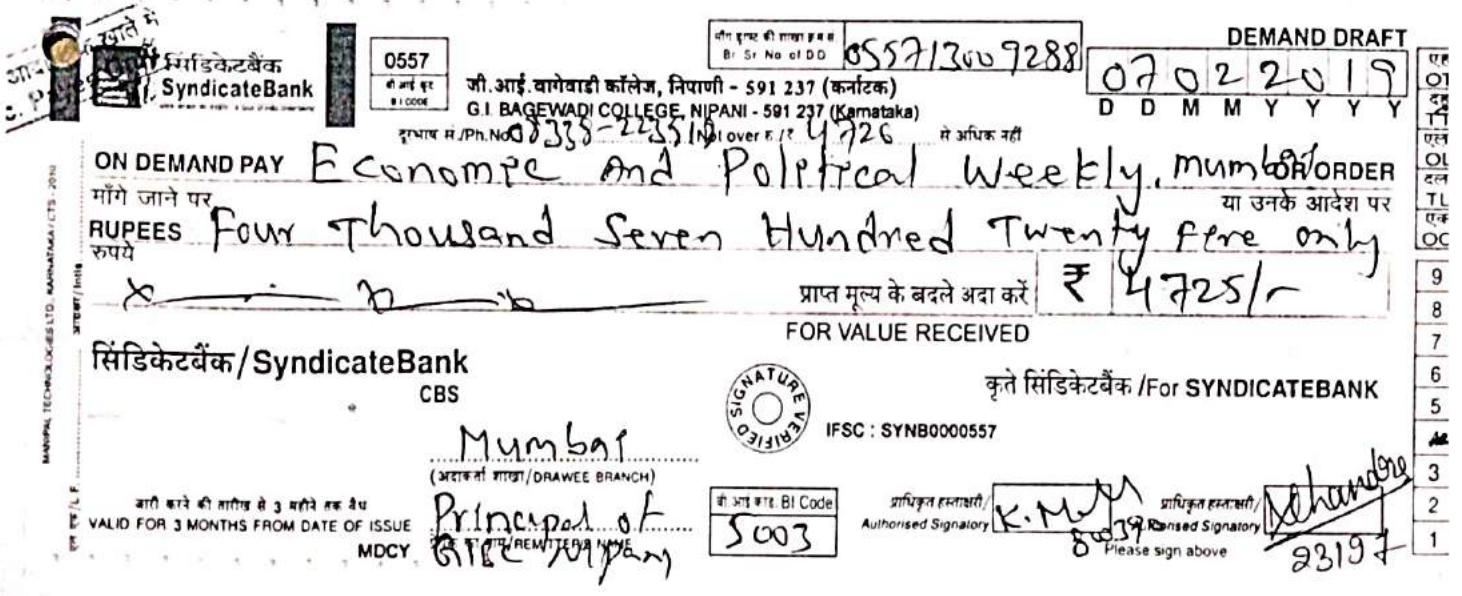 खाते में
DEMAND DRAFT
सिंडिकेटबैंक
SyndicateBank
0557
बी आई कूट
BI CODE
माँग ड्राफ्ट की शाखा क्रम सं
Br Sr No of DD 055713009288
07022019
D D M M Y Y Y Y
जी.आई.वागेवाडी कॉलेज, निपाणी - 591 237 (कर्नाटक)
G.I. BAGEWADI COLLEGE, NIPANI - 591 237 (Karnataka)
दूरभाष सं./Ph.No. Not over रु./₹ 4726 से अधिक नहीं
ON DEMAND PAY Economic And Political Weekly, Mumbai OR ORDER
माँगे जाने पर या उनके आदेश पर
RUPEES Four Thousand Seven Hundred Twenty five only
रुपये
प्राप्त मूल्य के बदले अदा करें ₹ 4725/-
FOR VALUE RECEIVED
सिंडिकेटबैंक/SyndicateBank
CBS
SIGNATURE VERIFIED
कृते सिंडिकेटबैंक /For SYNDICATEBANK
IFSC : SYNB0000557
Mumbai
(अदाकर्ता शाखा/DRAWEE BRANCH)
जारी करने की तारीख से 3 महीने तक वैध
VALID FOR 3 MONTHS FROM DATE OF ISSUE
Principal of
REMITTER'S NAME
MDCY
बी.आई कोड. BI Code
5003
प्राधिकृत हस्ताक्षरी/
Authorised Signatory
प्राधिकृत हस्ताक्षरी/
Signatory
Please sign above
23197
MANIPAL TECHNOLOGIES LTD., KARNATAKA / CTS - 2010
आद्यक्षर/Intls
एल एफ/L.F.
TL
OC
9
8
7
6
5
3
2
1